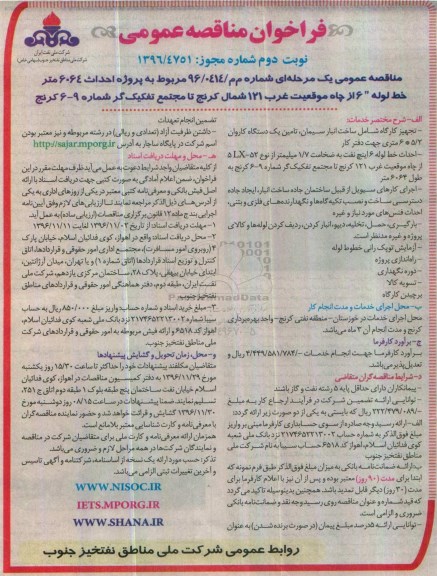 فراخوان مناقصه عمومی
نوبت دوم شماره مجوز: ۱۳۹۶/۴۷۵۱
شرکت ملی نفت ایران
شرکت ملی مناطق نفتخیز جنوب (سهامی خاص)
مناقصه عمومی یک مرحله‌ای شماره م م/۹۶/۰۴۱۴ مربوط به پروژه احداث ۶۰۶۴ متر
خط لوله "۶ از چاه موقعیت غرب ۱۲۱ شمال کرنج تا مجتمع تفکیک‌گر شماره ۹-۶ کرنج
الف- شرح مختصر خدمات:
- تجهیز کارگاه شامل ساخت انبار سیمان، تامین یک دستگاه کاروان
جهت دفتر کار
- احداث خط لوله ۶ اینچ نفت به ضخامت ۷/۱ میلیمتر از نوع
از چاه موقعیت غرب ۱۲۱ کرنج تا مجتمع تفکیک گر شماره ۹-۶ کرنج به
طول ۶۰۶۴ متر
- اجرای کارهای سویل از قبیل ساختمان جاده ساخت انبار، ایجاد جاده
دسترسی ساخت و نصب تکیه گاه‌ها و نگهدارنده‌های فلزی و بتنی،
احداث فنس‌های مورد نیاز و غیره
- بارگیری، حمل، تخلیه، دپو، انبار کردن، ردیف کردن لوله‌ها و کالای
پروژه و غیره مدنظر است
- آزمایش توپک رانی خطوط لوله
- راه‌اندازی پروژه
- دوره نگهداری
- تسویه کالا
برچیدن کارگاه
ب- محل اجرای خدمات و مدت انجام کار
محل اجرای خدمات در خوزستان - منطقه نفتی کرنج - واحد بهره‌برداری
کرنج و مدت انجام آن ۳ ماه می‌باشد.
ج- برآورد کارفرما
برآورد کارفرما جهت انجام خدمات ۴/۴۴۹/۵۸۱/۷۸۴/- ریال و
تعدیل‌پذیر می‌باشد
د- شرایط مناقصه‌گران متقاضی
- پیمانکاران دارای حداقل پایه ۵ رشته نفت و گاز باشند
- توانایی ارائه تضمین شرکت در فرآیند ارجاع کار به مبلغ
۲۲۲/۴۷۹/۰۸۹/- ریال که بایستی به یکی از دو صورت زیر ارائه گردد:
الف- ارائه رسید وجه صادره از سوی حسابداری کارفرما مبنی بر واریز
مبلغ فوق‌الذکر به شماره حساب ۲۱۷۴۶۵۲۲۱۳۰۰۲ نزد بانک ملی شعبه
کوی فدائیان اسلام، اهواز کد ۶۵۱۸ حساب سیبا به نام شرکت ملی
مناطق نفتخیز جنوب
ب- ارائه ضمانت‌نامه بانکی به میزان مبلغ فوق‌الذکر طبق فرم نمونه که
ابتدا برای مدت (۹۰ روز) معتبر بوده و پس از آن نیز با اعلام کارفرما برای
مدت (۳۰ روز) دیگر قابل تمدید باشد. همچنین بدینوسیله تاکید می گردد
که قید شماره و عنوان مناقصه روی رسید وجه نقد و ضمانت‌نامه بانکی
ضروری و الزامی است.
- توانایی ارائه ۵ درصد مبلغ پیمان (در صورت برنده شدن) به عنوان
تضمین انجام تعهدات
- داشتن ظرفیت آزاد (تعدادی و ریالی) در رشته مربوطه و نیز معتبر بودن
اسم شرکت در پایگاه ساجار به آدرس http://sajar.mporg.ir
هـ- محل و مهلت دریافت اسناد
از کلیه متقاضیان واجد شرایط دعوت به عمل می‌آید ظرف مهلت مقرر در این
فراخوان، ضمن اعلام آمادگی به صورت کتبی جهت دریافت اسناد با ارائه
اصل فیش بانکی و معرفی‌نامه کتبی معتبر در یکی از روزهای اداری به یکی
از آدرس‌های ذیل الذکر مراجعه نمایند تا ارزیابی‌های لازم وفق آیین‌نامه
اجرایی بند ج ماده ۱۲ قانون برگزاری مناقصات (ارزیابی ساده) به عمل آید.
۱- مهلت دریافت اسناد: از تاریخ ۱۳۹۶/۱۱/۰۲ لغایت ۱۳۹۶/۱۱/۱۱
۲- محل دریافت اسناد: واقع در اهواز، کوی فدائیان اسلام، خیابان پارک
۴ (روبروی امور مسافرت)، مجتمع اداری امور حقوقی و قراردادها، اتاق
کنترل و توزیع اسناد قراردادها (اتاق شماره ۱) و یا تهران، میدان آرژانتین،
ابتدای خیابان بیهقی، پلاک ۲۸، ساختمان مرکزی یازدهم، شرکت ملی
نفت ایران، طبقه دوم، دفتر هماهنگی امور حقوقی و قراردادهای مناطق
نفتخیز جنوب
۳- مبلغ خرید اسناد و شماره حساب: واریز مبلغ ۸۵۰/۰۰۰ ریال به حساب
سیبا شماره ۲۱۷۴۶۵۲۲۱۳۰۰۲ نزد بانک ملی شعبه کوی فدائیان اسلام،
اهواز کد ۶۵۱۸ و ارائه فیش مربوطه به امور حقوقی و قراردادهای شرکت
ملی مناطق نفتخیز جنوب.
و- محل، زمان تحویل و گشایش پیشنهادها
متقاضیان مکلفند پیشنهادات خود را حداکثر تا ساعت ۱۵/۳۰ روز یکشنبه
مورخ ۱۳۹۶/۱۱/۲۹ به دفتر کمیسیون مناقصات در اهواز، کوی فدائیان
اسلام خیابان نفت ساختمان پنج طبقه بلوک ۱ طبقه دوم اتاق ج ۲۵۱،
تسلیم نمایند. ضمنا پیشنهادات در ساعت ۰۸/۱۵ روز دوشنبه مورخ
۱۳۹۶/۱۱/۳۰ گشایش و قرائت خواهد شد و حضور نماینده مناقصه‌گران
با معرفی‌نامه و کارت شناسایی معتبر بلامانع است.
همزمان ارائه معرفی‌نامه و کارت ملی برای متقاضیان شرکت در مناقصه
و نمایندگان شرکت‌ها در همه مراحل لازم و ضروری می‌باشد.
تذکر: حسب مورد ارائه یک نسخه از اساسنامه، شرکتنامه و آگهی تاسیس
و آخرین تغییرات ثبتی الزامی می‌باشد.
WWW.NISOC.IR
IETS.MPORG.IR
WWW.SHANA.IR
روابط عمومی شرکت ملی مناطق نفتخیز جنوب